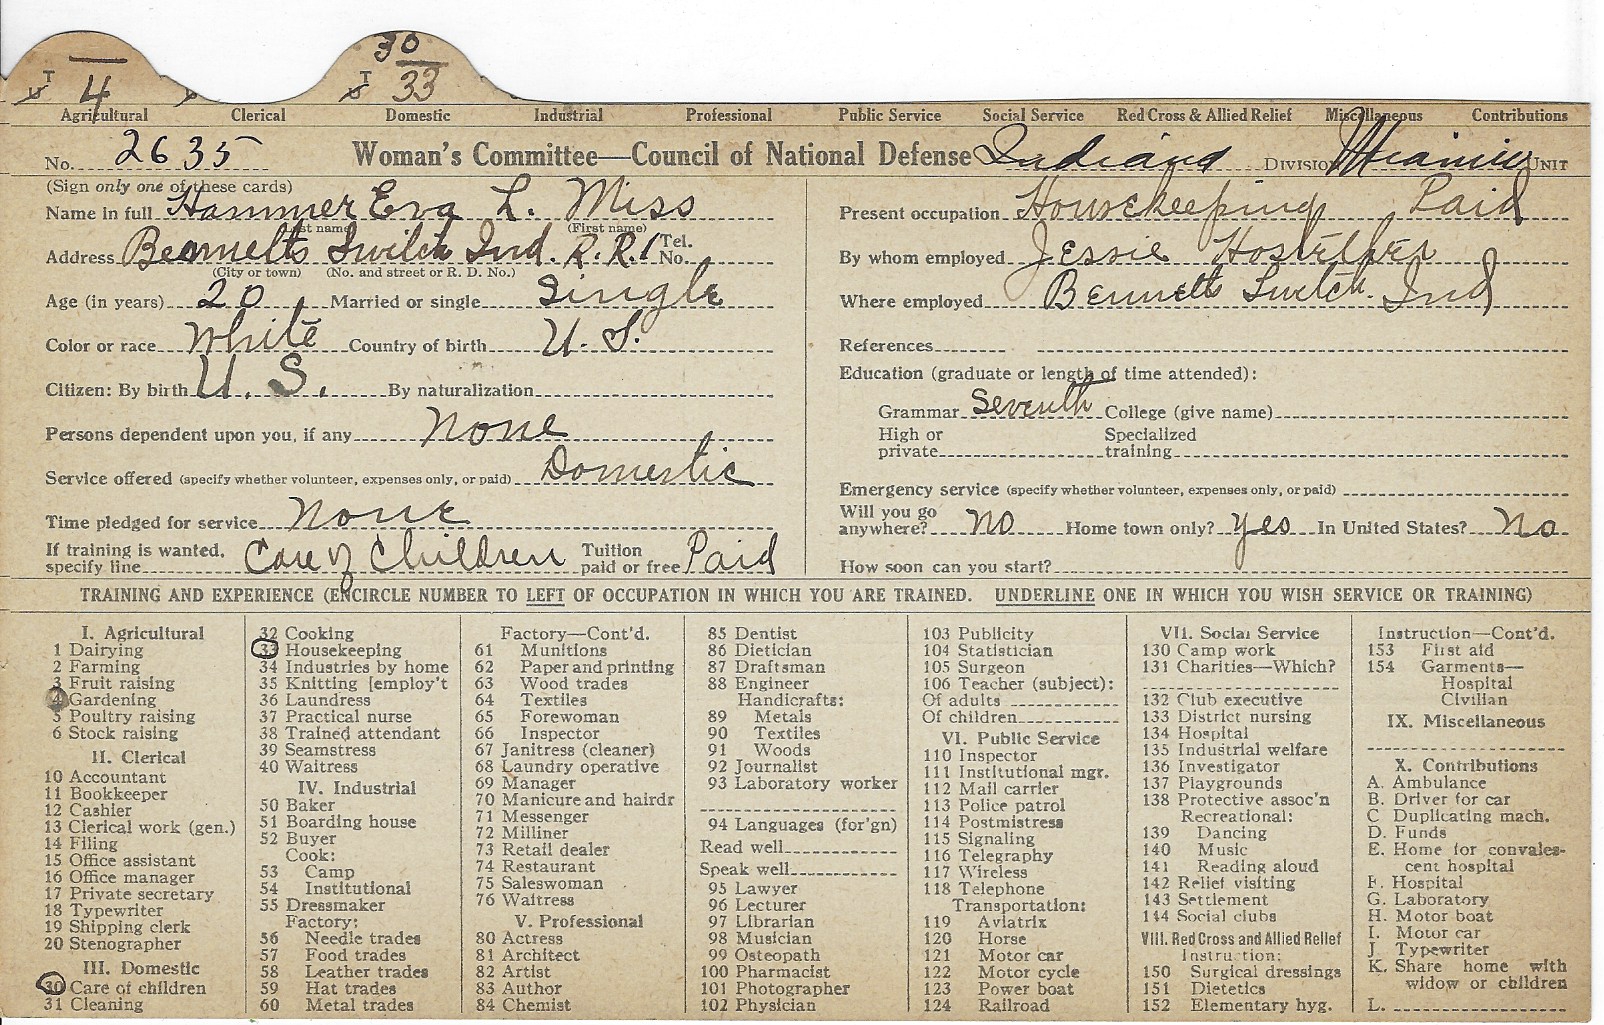 30
T 4 T 33
Agricultural Clerical Domestic Industrial Professional Public Service Social Service Red Cross & Allied Relief Miscellaneous Contributions
No. 2635 Woman's Committee—Council of National Defense Indiana DIVISION Miami UNIT
(Sign only one of these cards)
Name in full Hammer Eva L. Miss
(Last name) (First name)
Address Bennetts Switch Ind. R.R.1 Tel. No.
(City or town) (No. and street or R. D. No.)
Age (in years) 20 Married or single Single
Color or race White Country of birth U. S.
Citizen: By birth U. S. By naturalization
Persons dependent upon you, if any None
Service offered (specify whether volunteer, expenses only, or paid) Domestic
Time pledged for service None
If training is wanted, specify line Care of Children Tuition paid or free Paid
Present occupation Housekeeping Paid
By whom employed Jessie Hostetler
Where employed Bennetts Switch Ind
References
Education (graduate or length of time attended):
Grammar Seventh College (give name)
High or private Specialized training
Emergency service (specify whether volunteer, expenses only, or paid)
Will you go anywhere? No Home town only? Yes In United States? No
How soon can you start?
TRAINING AND EXPERIENCE (ENCIRCLE NUMBER TO LEFT OF OCCUPATION IN WHICH YOU ARE TRAINED. UNDERLINE ONE IN WHICH YOU WISH SERVICE OR TRAINING)
I. Agricultural
1 Dairying
2 Farming
3 Fruit raising
4 Gardening
5 Poultry raising
6 Stock raising
II. Clerical
10 Accountant
11 Bookkeeper
12 Cashier
13 Clerical work (gen.)
14 Filing
15 Office assistant
16 Office manager
17 Private secretary
18 Typewriter
19 Shipping clerk
20 Stenographer
III. Domestic
30 Care of children
31 Cleaning
32 Cooking
33 Housekeeping
34 Industries by home
35 Knitting [employ't
36 Laundress
37 Practical nurse
38 Trained attendant
39 Seamstress
40 Waitress
IV. Industrial
50 Baker
51 Boarding house
52 Buyer
Cook:
53 Camp
54 Institutional
55 Dressmaker
Factory:
56 Needle trades
57 Food trades
58 Leather trades
59 Hat trades
60 Metal trades
Factory—Cont'd.
61 Munitions
62 Paper and printing
63 Wood trades
64 Textiles
65 Forewoman
66 Inspector
67 Janitress (cleaner)
68 Laundry operative
69 Manager
70 Manicure and hairdr
71 Messenger
72 Milliner
73 Retail dealer
74 Restaurant
75 Saleswoman
76 Waitress
V. Professional
80 Actress
81 Architect
82 Artist
83 Author
84 Chemist
85 Dentist
86 Dietician
87 Draftsman
88 Engineer
Handicrafts:
89 Metals
90 Textiles
91 Woods
92 Journalist
93 Laboratory worker
94 Languages (for'gn)
Read well
Speak well
95 Lawyer
96 Lecturer
97 Librarian
98 Musician
99 Osteopath
100 Pharmacist
101 Photographer
102 Physician
103 Publicity
104 Statistician
105 Surgeon
106 Teacher (subject):
Of adults
Of children
VI. Public Service
110 Inspector
111 Institutional mgr.
112 Mail carrier
113 Police patrol
114 Postmistress
115 Signaling
116 Telegraphy
117 Wireless
118 Telephone
Transportation:
119 Aviatrix
120 Horse
121 Motor car
122 Motor cycle
123 Power boat
124 Railroad
VII. Social Service
130 Camp work
131 Charities—Which?
132 Club executive
133 District nursing
134 Hospital
135 Industrial welfare
136 Investigator
137 Playgrounds
138 Protective assoc'n
Recreational:
139 Dancing
140 Music
141 Reading aloud
142 Relief visiting
143 Settlement
144 Social clubs
VIII. Red Cross and Allied Relief
Instruction:
150 Surgical dressings
151 Dietetics
152 Elementary hyg.
Instruction—Cont'd.
153 First aid
154 Garments—
Hospital
Civilian
IX. Miscellaneous
X. Contributions
A. Ambulance
B. Driver for car
C Duplicating mach.
D. Funds
E. Home for convales-
cent hospital
F. Hospital
G. Laboratory
H. Motor boat
I. Motor car
J. Typewriter
K. Share home with
widow or children
L.